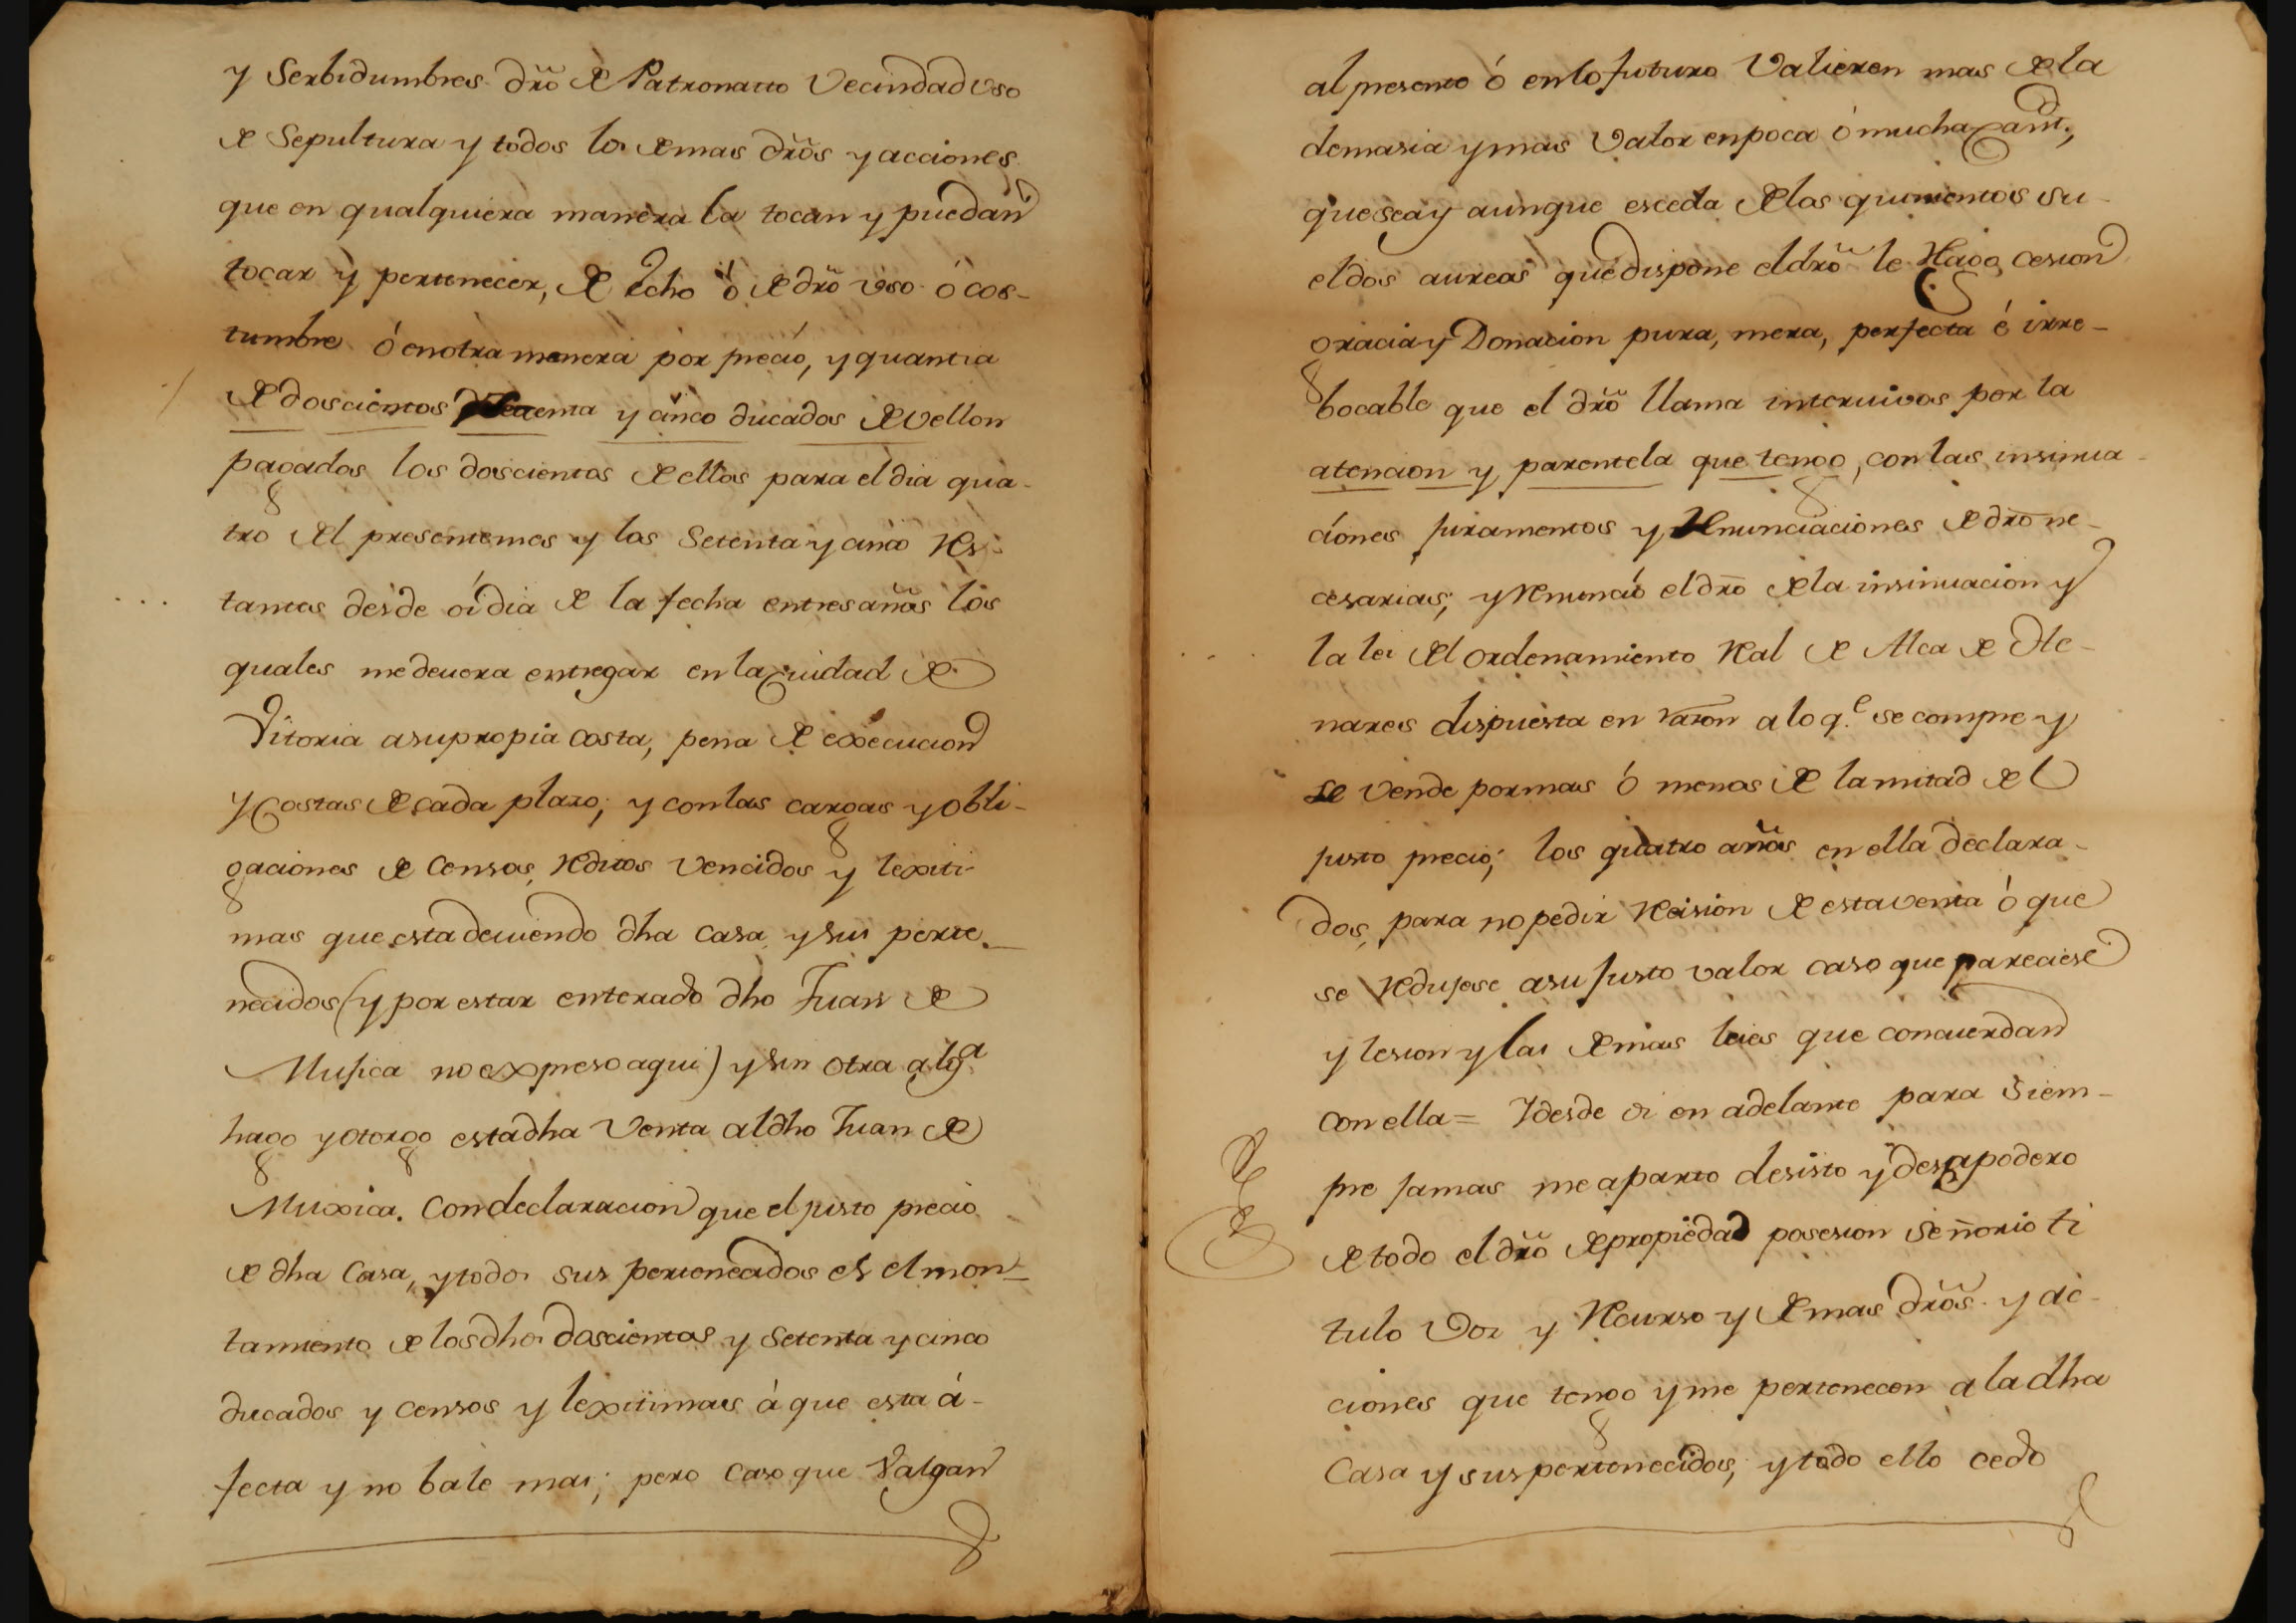 y Serbidumbres dr̃o de Patronatto Vecindad Uso
de Sepultura y todos los demas dr̃os y acciones
que en qualquiera manera la tocan y puedan
tocar y pertenecer, de echo ó de dr̃o uso ó cos-
tumbre ó en otra manera por precio, y quantia
de doscientos setenta y cinco ducados de vellon
pagados los doscientos de ellos para el dia qua-
tro del presente mes y los Setenta y cinco Res-
tantes desde oi dia de la fecha en tres años los
quales me deuera entregar en la Ciudad de
Vitoria a su propia costa, pena de execucion
y Costas de cada plazo; y con las cargas y obli-
gaciones de Censos, Reditos Vencidos y lexiti-
mas que esta deuiendo dha casa y sus perte-
necidos (y por estar enterado dho Juan de
Mujica no expreso aqui) y sin otra alg.ª
hago y otorgo esta dha Venta al dho Juan de
Muxica. Con declaracion que el justo precio
de dha Casa, y todos sus pertenecidos es el mon-
tamiento de los dhos doscientos y Setenta y cinco
ducados y censos y lexitimas á que esta á-
fecta y no bale mas; pero caso que Valgan
al presente ó en lo futuro Valieren mas de la
demasia y mas Valor en poca ó mucha cant.d,
que sea y aunque exceda de los quinientos su-
eldos aureos que dispone el dr̃o le Hago cesion
gracia y Donacion pura, mera, perfecta é irre-
bocable que el dr̃o llama interuivos por la
atencion y parentela que tengo, con las insinua-
ciones juramentos y Renunciaciones de dr̃o ne-
cesarias; y Renuncio el dr̃o de la insinuacion y
la lei del ordenamiento Real de Alca de He-
nares dispuesta en razon a lo q.e se compre y
se vende por mas ó menos de la mitad del
justo precio; los quatro años en ella declara-
dos, para no pedir Recision de esta venta ó que
se Redujese a su justo valor caso que pareciese
y lesion y las demas leies que concuerdan
con ella = Y desde oi en adelante para Siem-
pre jamas me aparto desisto y desapodero
de todo el dr̃o de propiedad posesion Señorio ti
tulo Voz y Recurso y demas dr̃os y ac-
ciones que tengo y me pertenecen a la dha
Casa y sus pertenecidos; y todo ello cedo